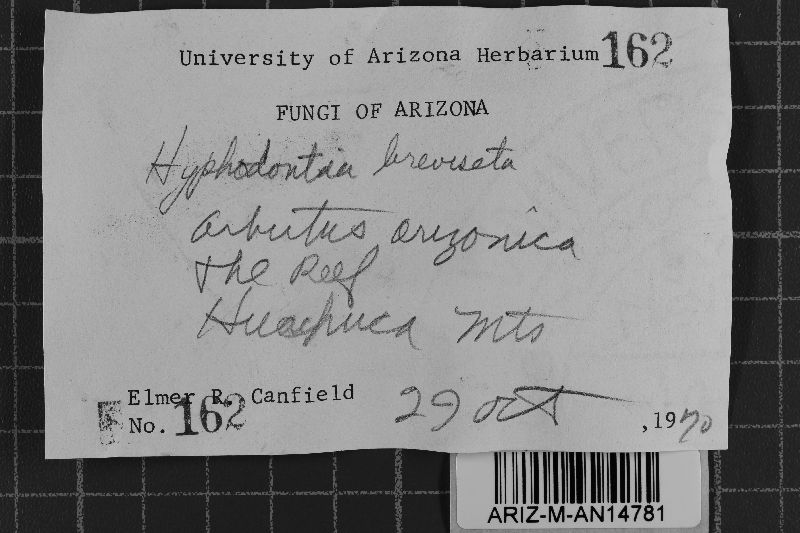 University of Arizona Herbarium 162
FUNGI OF ARIZONA
Hyphodontia breviseta
Arbutus arizonica
The Reef
Huachuca Mts
Elmer R. Canfield
No. 162
29 Oct ,1970
ARIZ-M-AN14781